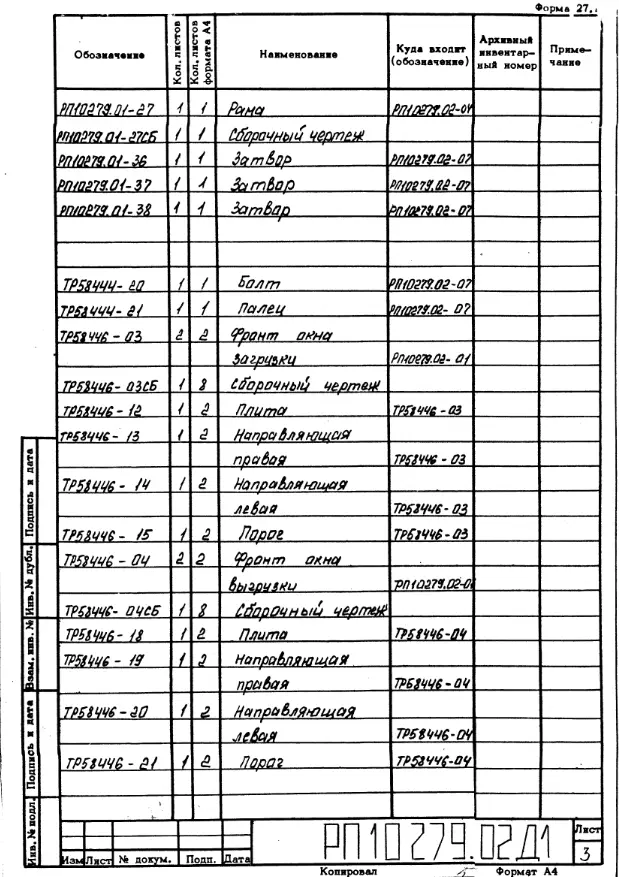 Форма 27
Обозначение Кол. листов Кол. листов формата А4 Наименование Куда входит (обозначение) Архивный инвентарный номер Примечание
РП10279.01-27 1 1 Рама РП10279.02-04
РП10279.01-27СБ 1 1 Сборочный чертеж
РП10279.01-36 1 1 Затвор РП10279.02-07
РП10279.01-37 1 1 Затвор РП10279.02-07
РП10279.01-38 1 1 Затвор РП10279.02-07
ТР58444-20 1 1 Болт РП10279.02-07
ТР58444-21 1 1 Палец РП10279.02-07
ТР58446-03 2 2 Фронт окна
загрузки РП10279.02-01
ТР58446-03СБ 1 8 Сборочный чертеж
ТР58446-12 1 2 Плита ТР58446-03
ТР58446-13 1 2 Направляющая
правая ТР58446-03
ТР58446-14 1 2 Направляющая
левая ТР58446-03
ТР58446-15 1 2 Порог ТР58446-03
ТР58446-04 2 2 Фронт окна
выгрузки РП10279.02-01
ТР58446-04СБ 1 8 Сборочный чертеж
ТР58446-18 1 2 Плита ТР58446-04
ТР58446-19 1 2 Направляющая
правая ТР58446-04
ТР58446-20 1 2 Направляющая
левая ТР58446-04
ТР58446-21 1 2 Порог ТР58446-04
Подпись и дата
Инв. № дубл.
Взам. инв. №
Подпись и дата
Инв. № подл.
Изм Лист № докум. Подп. Дата
РП10279.02Д1
Лист
3
Копировал Формат А4